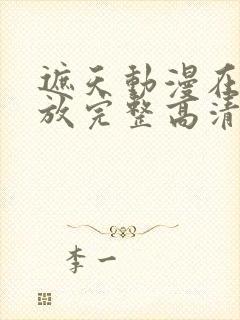 遮天動漫在
放完整高清
李一